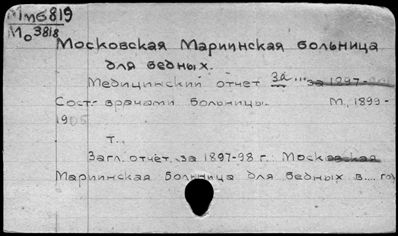 Мтб819
Мо3818
Московская Мариинская больница
для бедных.
Медицинский отчет за... за 1897-
Сост. врачами больницы. М., 1899-
19
т.,
Загл. отчёт. за 1897-98 г. Московская
Мариинская больница для бедных в.... го